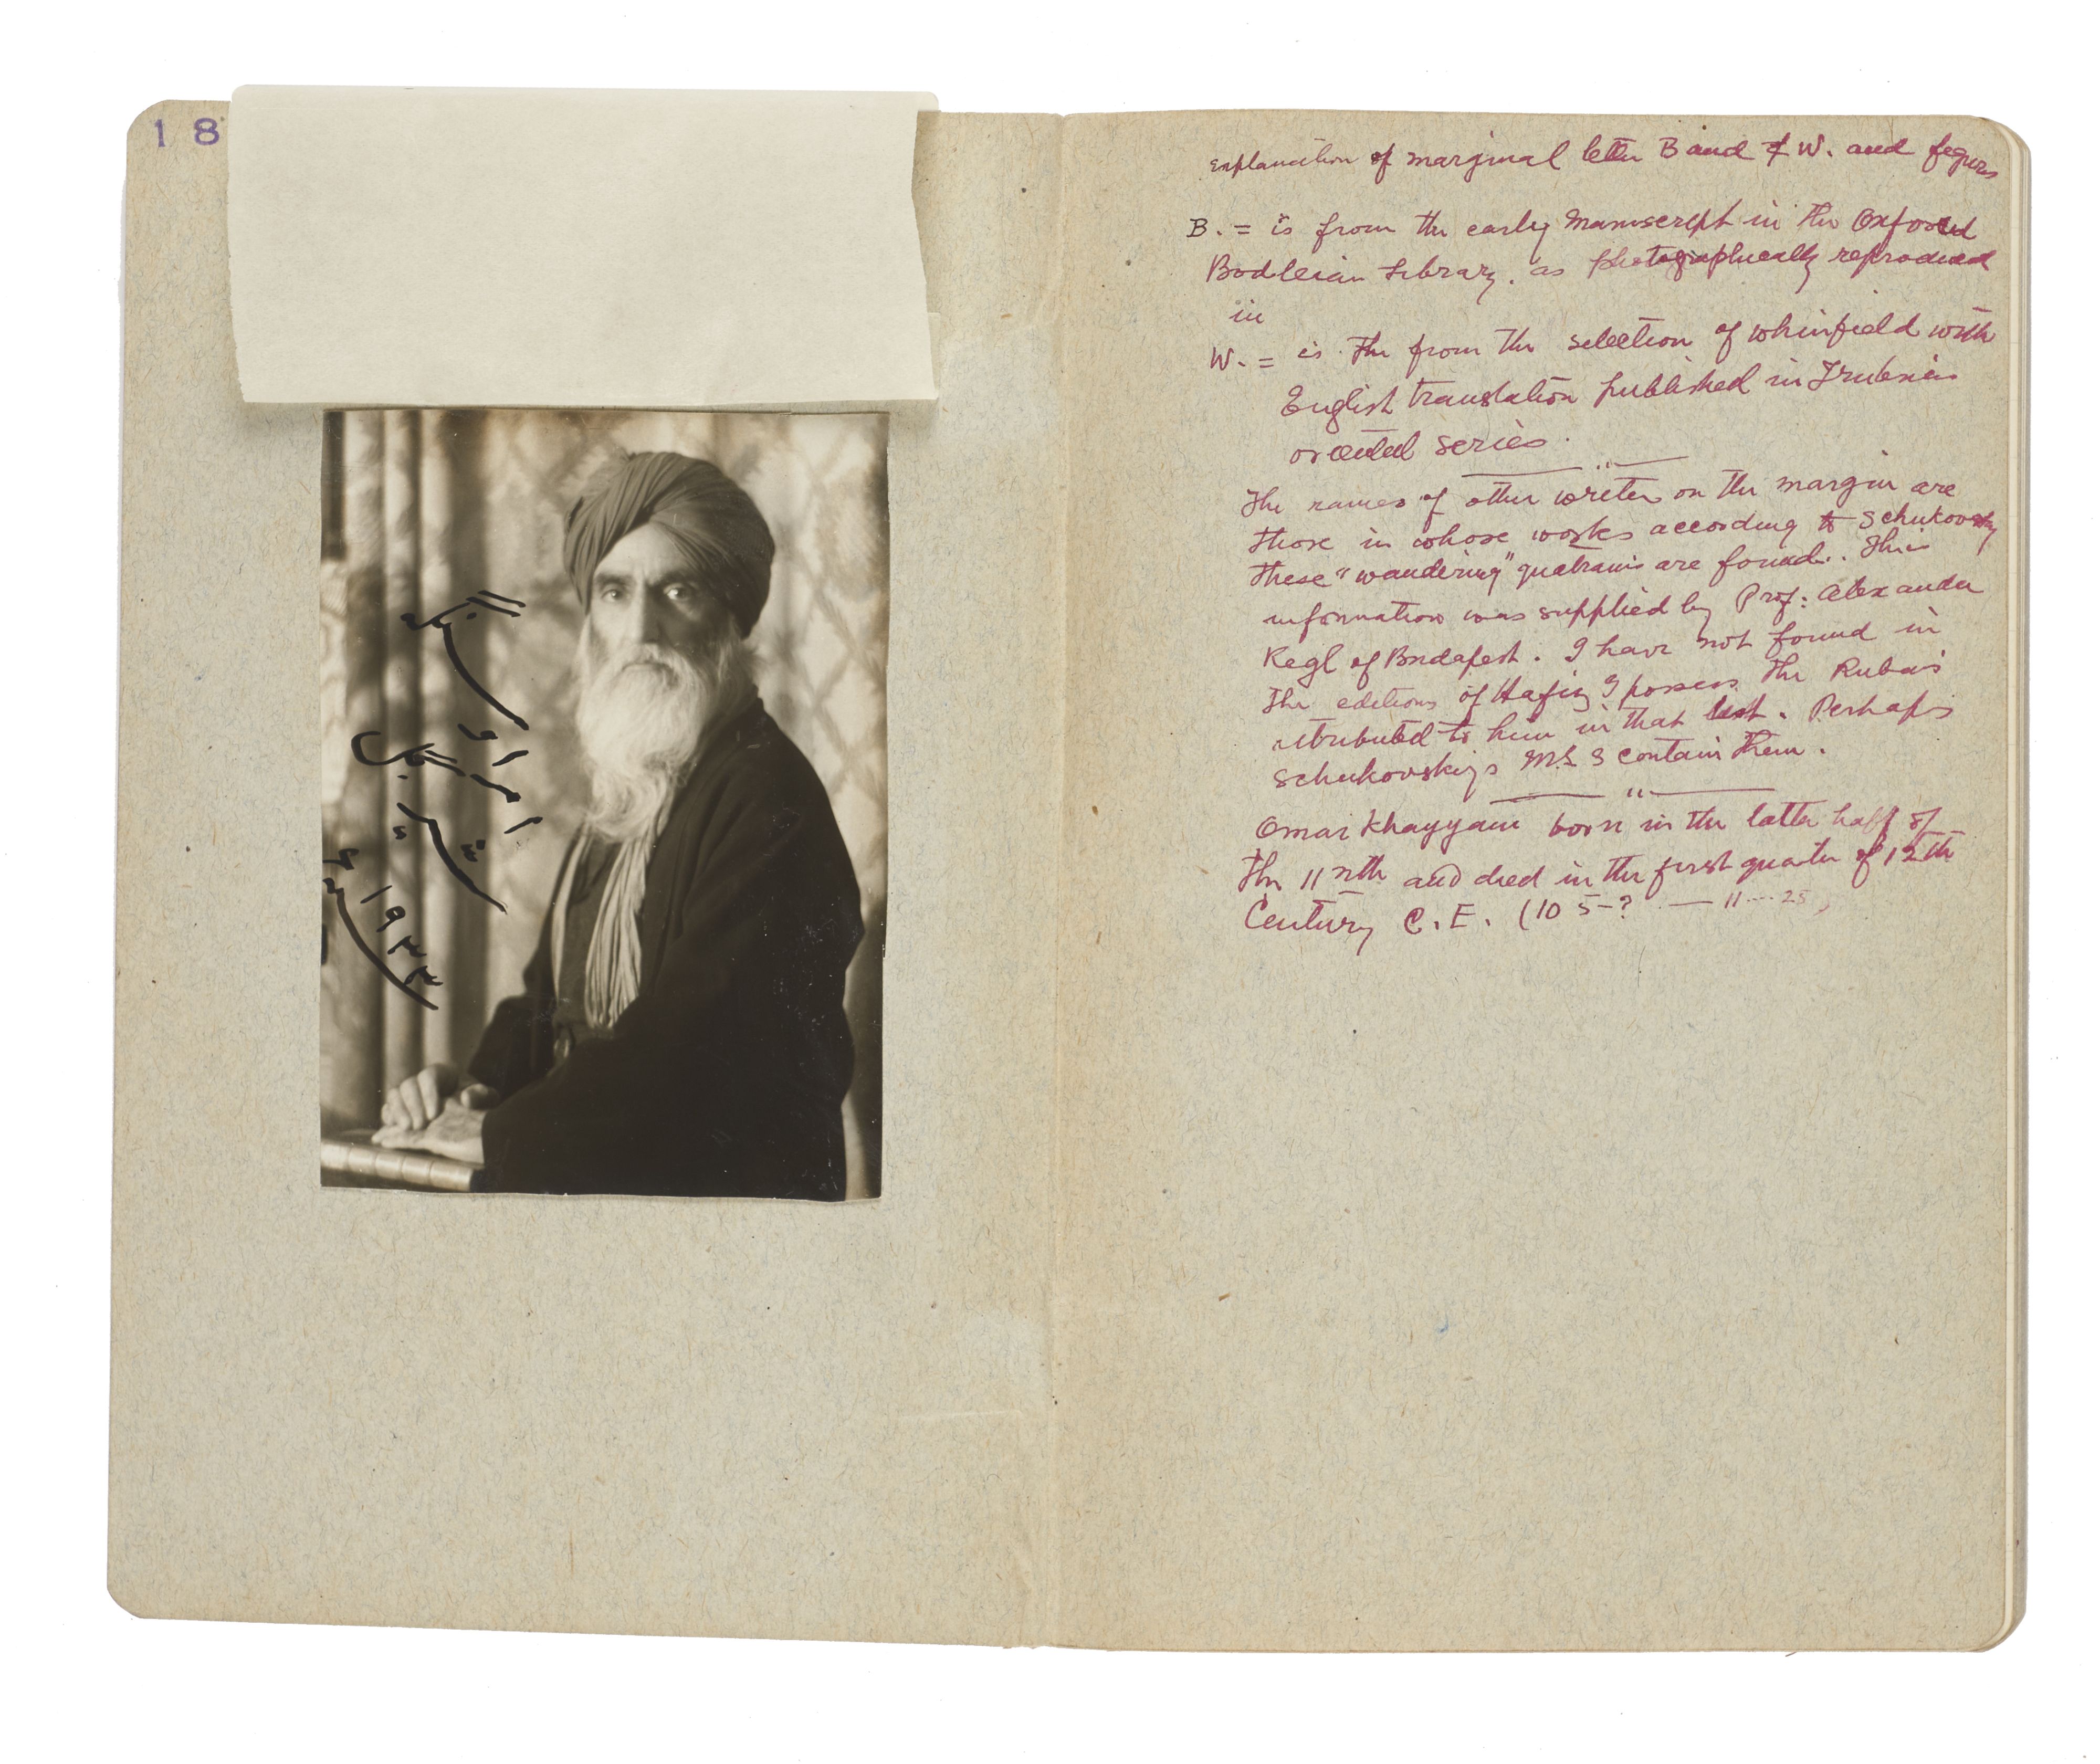 18
امراو سنگھ
شیر گل
۱۹۳۳
explanation of marginal letter B and & W. and figures
B. = is from the early Manuscript in the Oxford
Bodleian Library. as photographically reproduced
in
W. = is the from the selection of whinfield with
English translation published in Trubners
oriental series.
The names of other writers on the margin are
those in whose works according to Schukovsky
these "wandering" quatrains are found. This
information was supplied by Prof: Alexander
Kegl of Budapest. I have not found in
the editions of Hafiz I possess the Rubais
attributed to him in that list. Perhaps
Schukovskiys MSS contain them.
Omar Khayyam born in the latter half of
the 11nth and died in the first quarter of 12th
Century C.E. (10 5-? — 11 ... 25)